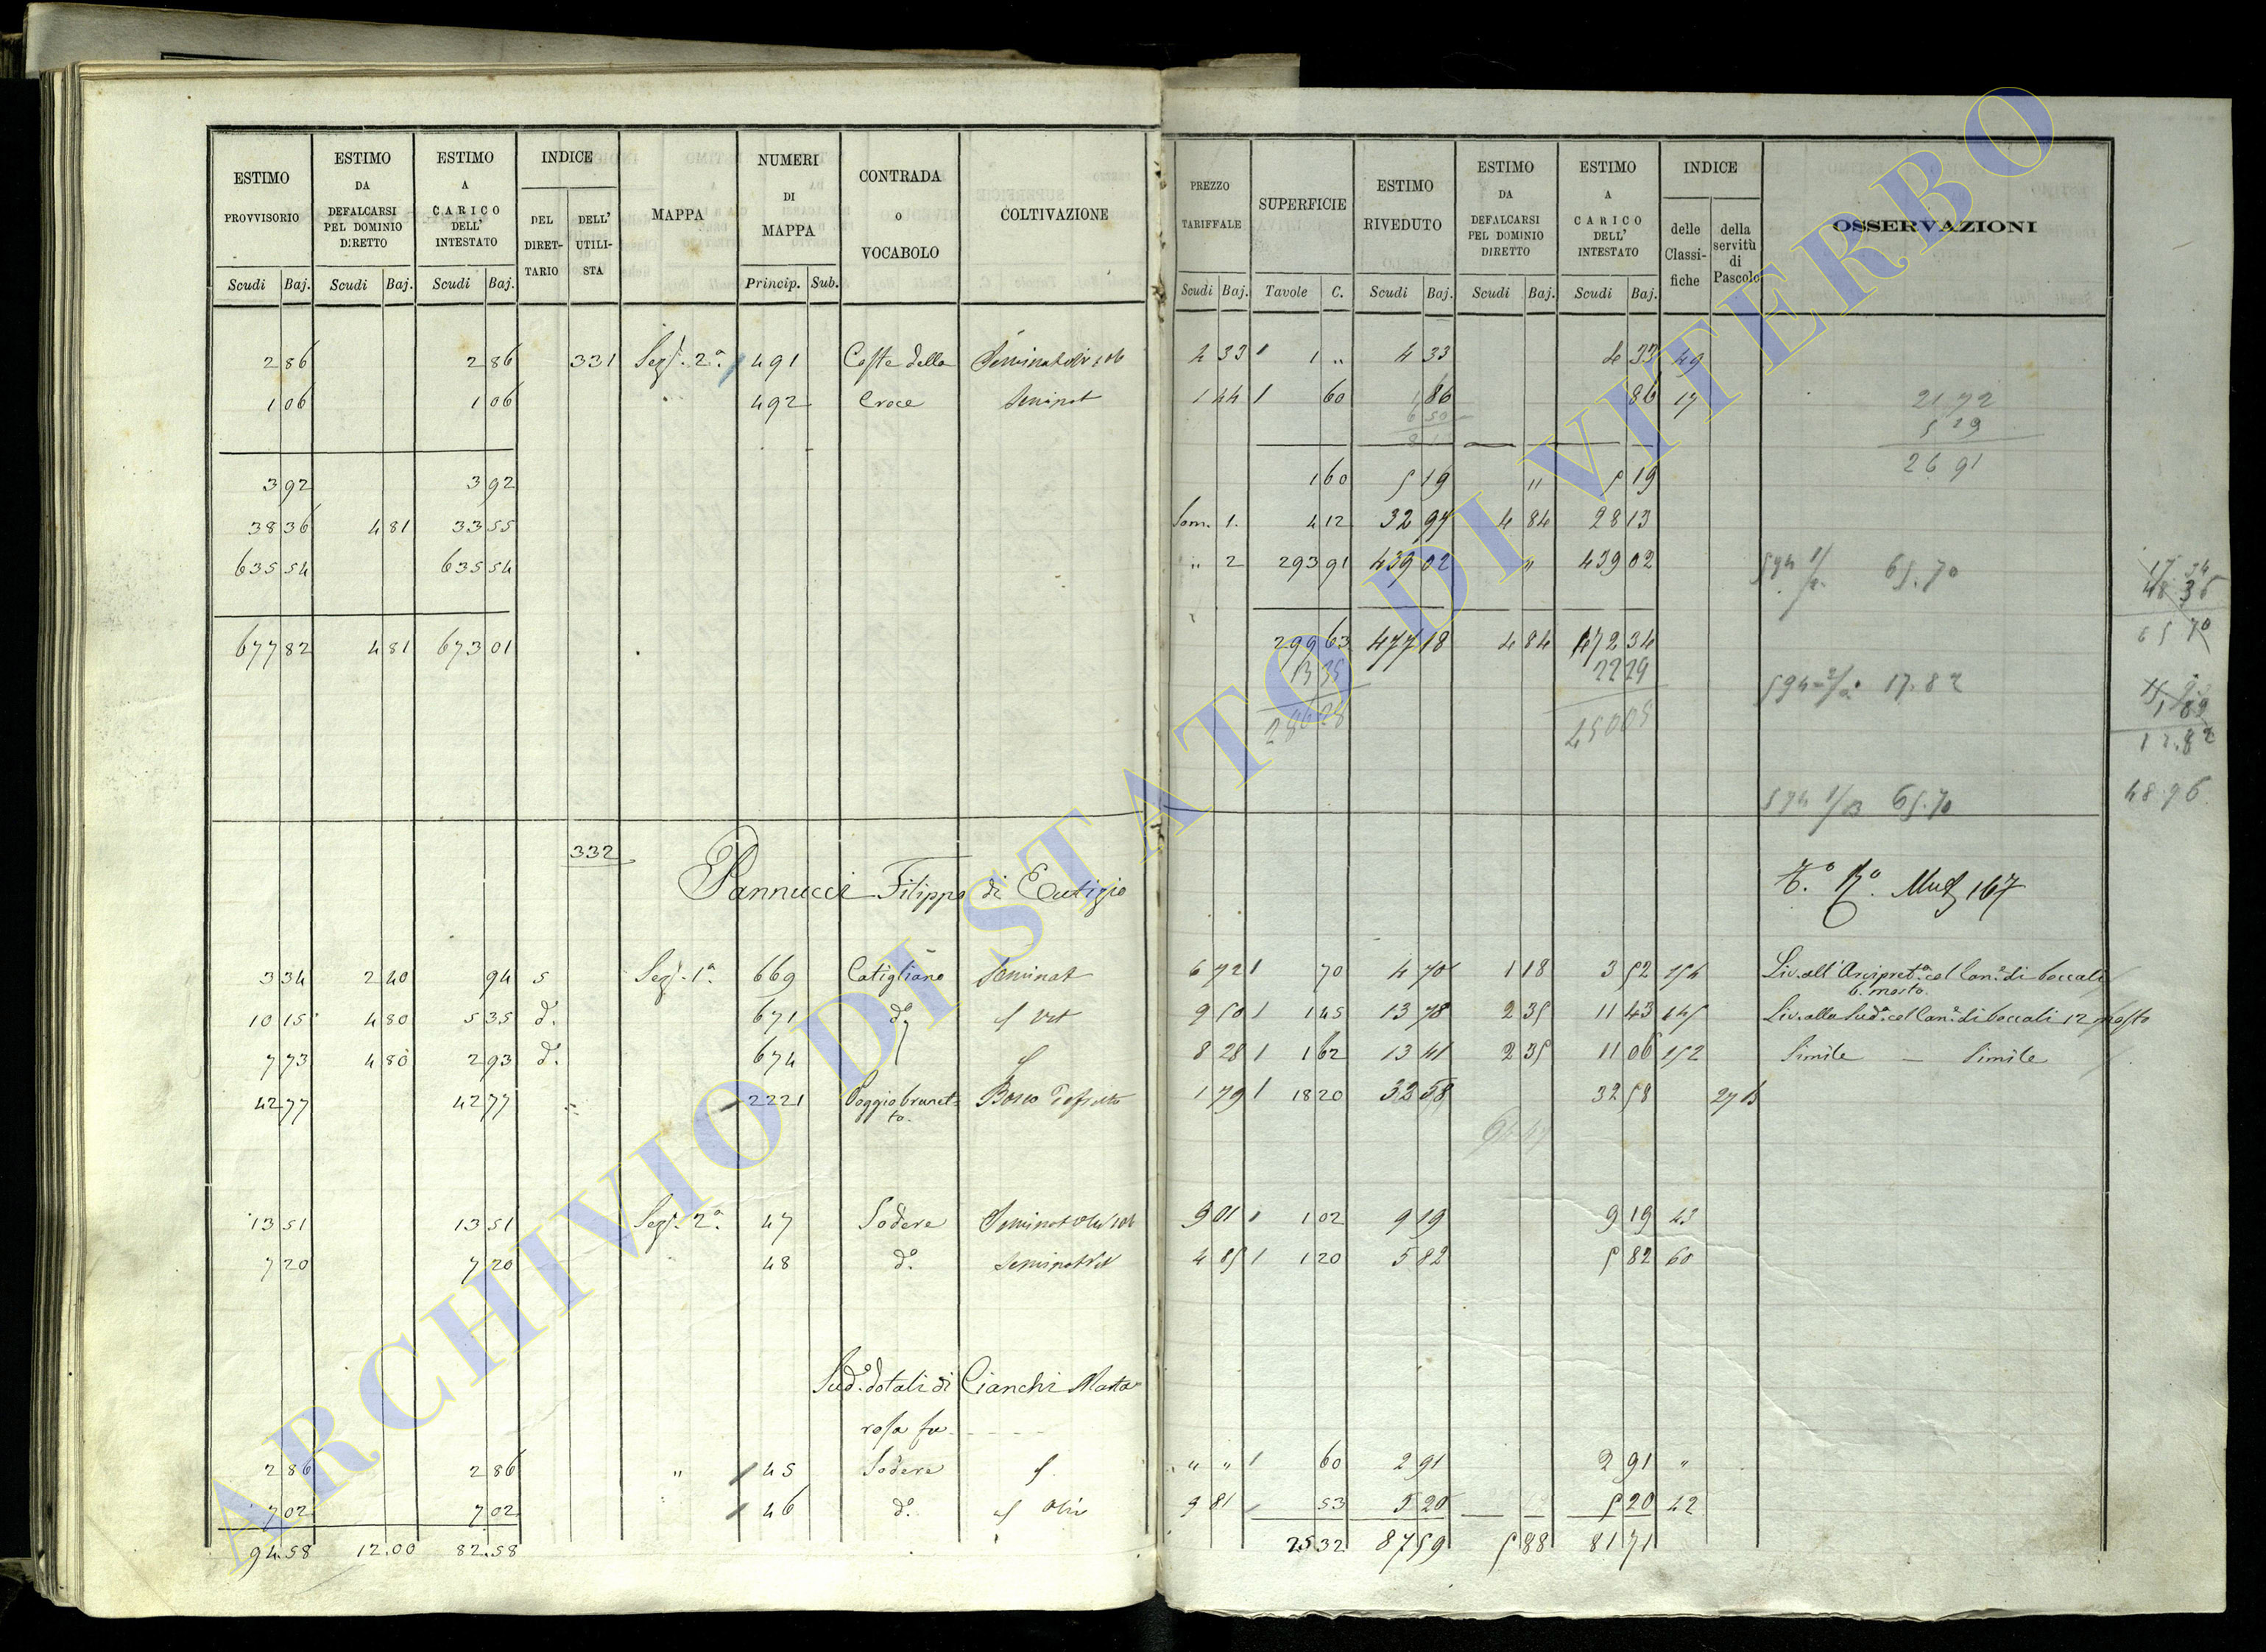 ESTIMO PROVVISORIO | ESTIMO DA DEFALCARSI PEL DOMINIO DIRETTO | ESTIMO A CARICO DELL' INTESTATO | INDICE | MAPPA | NUMERI DI MAPPA | CONTRADA o VOCABOLO | COLTIVAZIONE | PREZZO TARIFFALE | SUPERFICIE | ESTIMO RIVEDUTO | ESTIMO DA DEFALCARSI PEL DOMINIO DIRETTO | ESTIMO A CARICO DELL' INTESTATO | INDICE | OSSERVAZIONI
DEL DIRETTARIO | DELL' UTILISTA | delle Classifiche | della servitù di Pascolo
Scudi | Baj. | Scudi | Baj. | Scudi | Baj. | Princip. | Sub. | Scudi | Baj. | Tavole | C. | Scudi | Baj. | Scudi | Baj. | Scudi | Baj.
2 86 | 2 86 | 331 | Sez. 2ª | 491 | Coste della | 4 33 | 1 " | 4 33 | 4 33 | 49
1 06 | 1 06 | 492 | Croce | Seminat | 1 44 | 60 | 86 | 86 | 17
21 72
5 19
26 91
3 92 | 3 92 | 1 60 | 5 19 | " | 5 19
38 36 | 4 81 | 33 55 | Som. 1. | 4 12 | 32 97 | 4 84 | 28 13
635 54 | 635 54 | " 2 | 293 91 | 439 02 | " | 439 02 | 65.70
677 82 | 4 81 | 673 01 | 299 63 | 477 18 | 4 84 | 472 34
22 29
17.82
65.70
48.96
332
Pannucci Filippo di Eutizio
Mut 167
3 34 | 2 40 | 94 | 5 | Sez. 1ª | 669 | Catigliano | Seminat | 6 72 | 70 | 4 70 | 1 18 | 3 52 | 154 | Liv. all' Arcipret.ª col Can.e di boccali 6. mosto.
10 15 | 4 80 | 5 35 | d.º | 671 | d.º | Vit | 9 50 | 1 45 | 13 78 | 2 35 | 11 43 | 145 | Liv. alla Sud.ª col Can.e di boccali 12 mosto
7 73 | 4 80 | 2 93 | d.º | 674 | 8 28 | 1 62 | 13 41 | 2 35 | 11 06 | 152 | Simile — Simile
42 77 | 42 77 | 2221 | Poggio brunetto. | Bosco | 1 79 | 18 20 | 32 58 | 32 58
13 51 | 13 51 | Sez. 2ª | 47 | Sodere | 9 01 | 1 02 | 9 19 | 9 19 | 43
7 20 | 7 20 | 48 | d.º | Seminat Vit | 4 85 | 1 20 | 5 82 | 5 82 | 60
Sud.º dotali di Cianchi Maria
rosa fu
2 86 | 2 86 | " | 45 | Sodere | " " | 60 | 2 91 | 2 91 | "
7 02 | 7 02 | 46 | d.º | Oliv | 9 81 | 53 | 5 20 | 5 20 | 42
94.58 | 12.00 | 82.58 | 25 32 | 87 59 | 5 88 | 81 71
ARCHIVIO DI STATO DI VITERBO